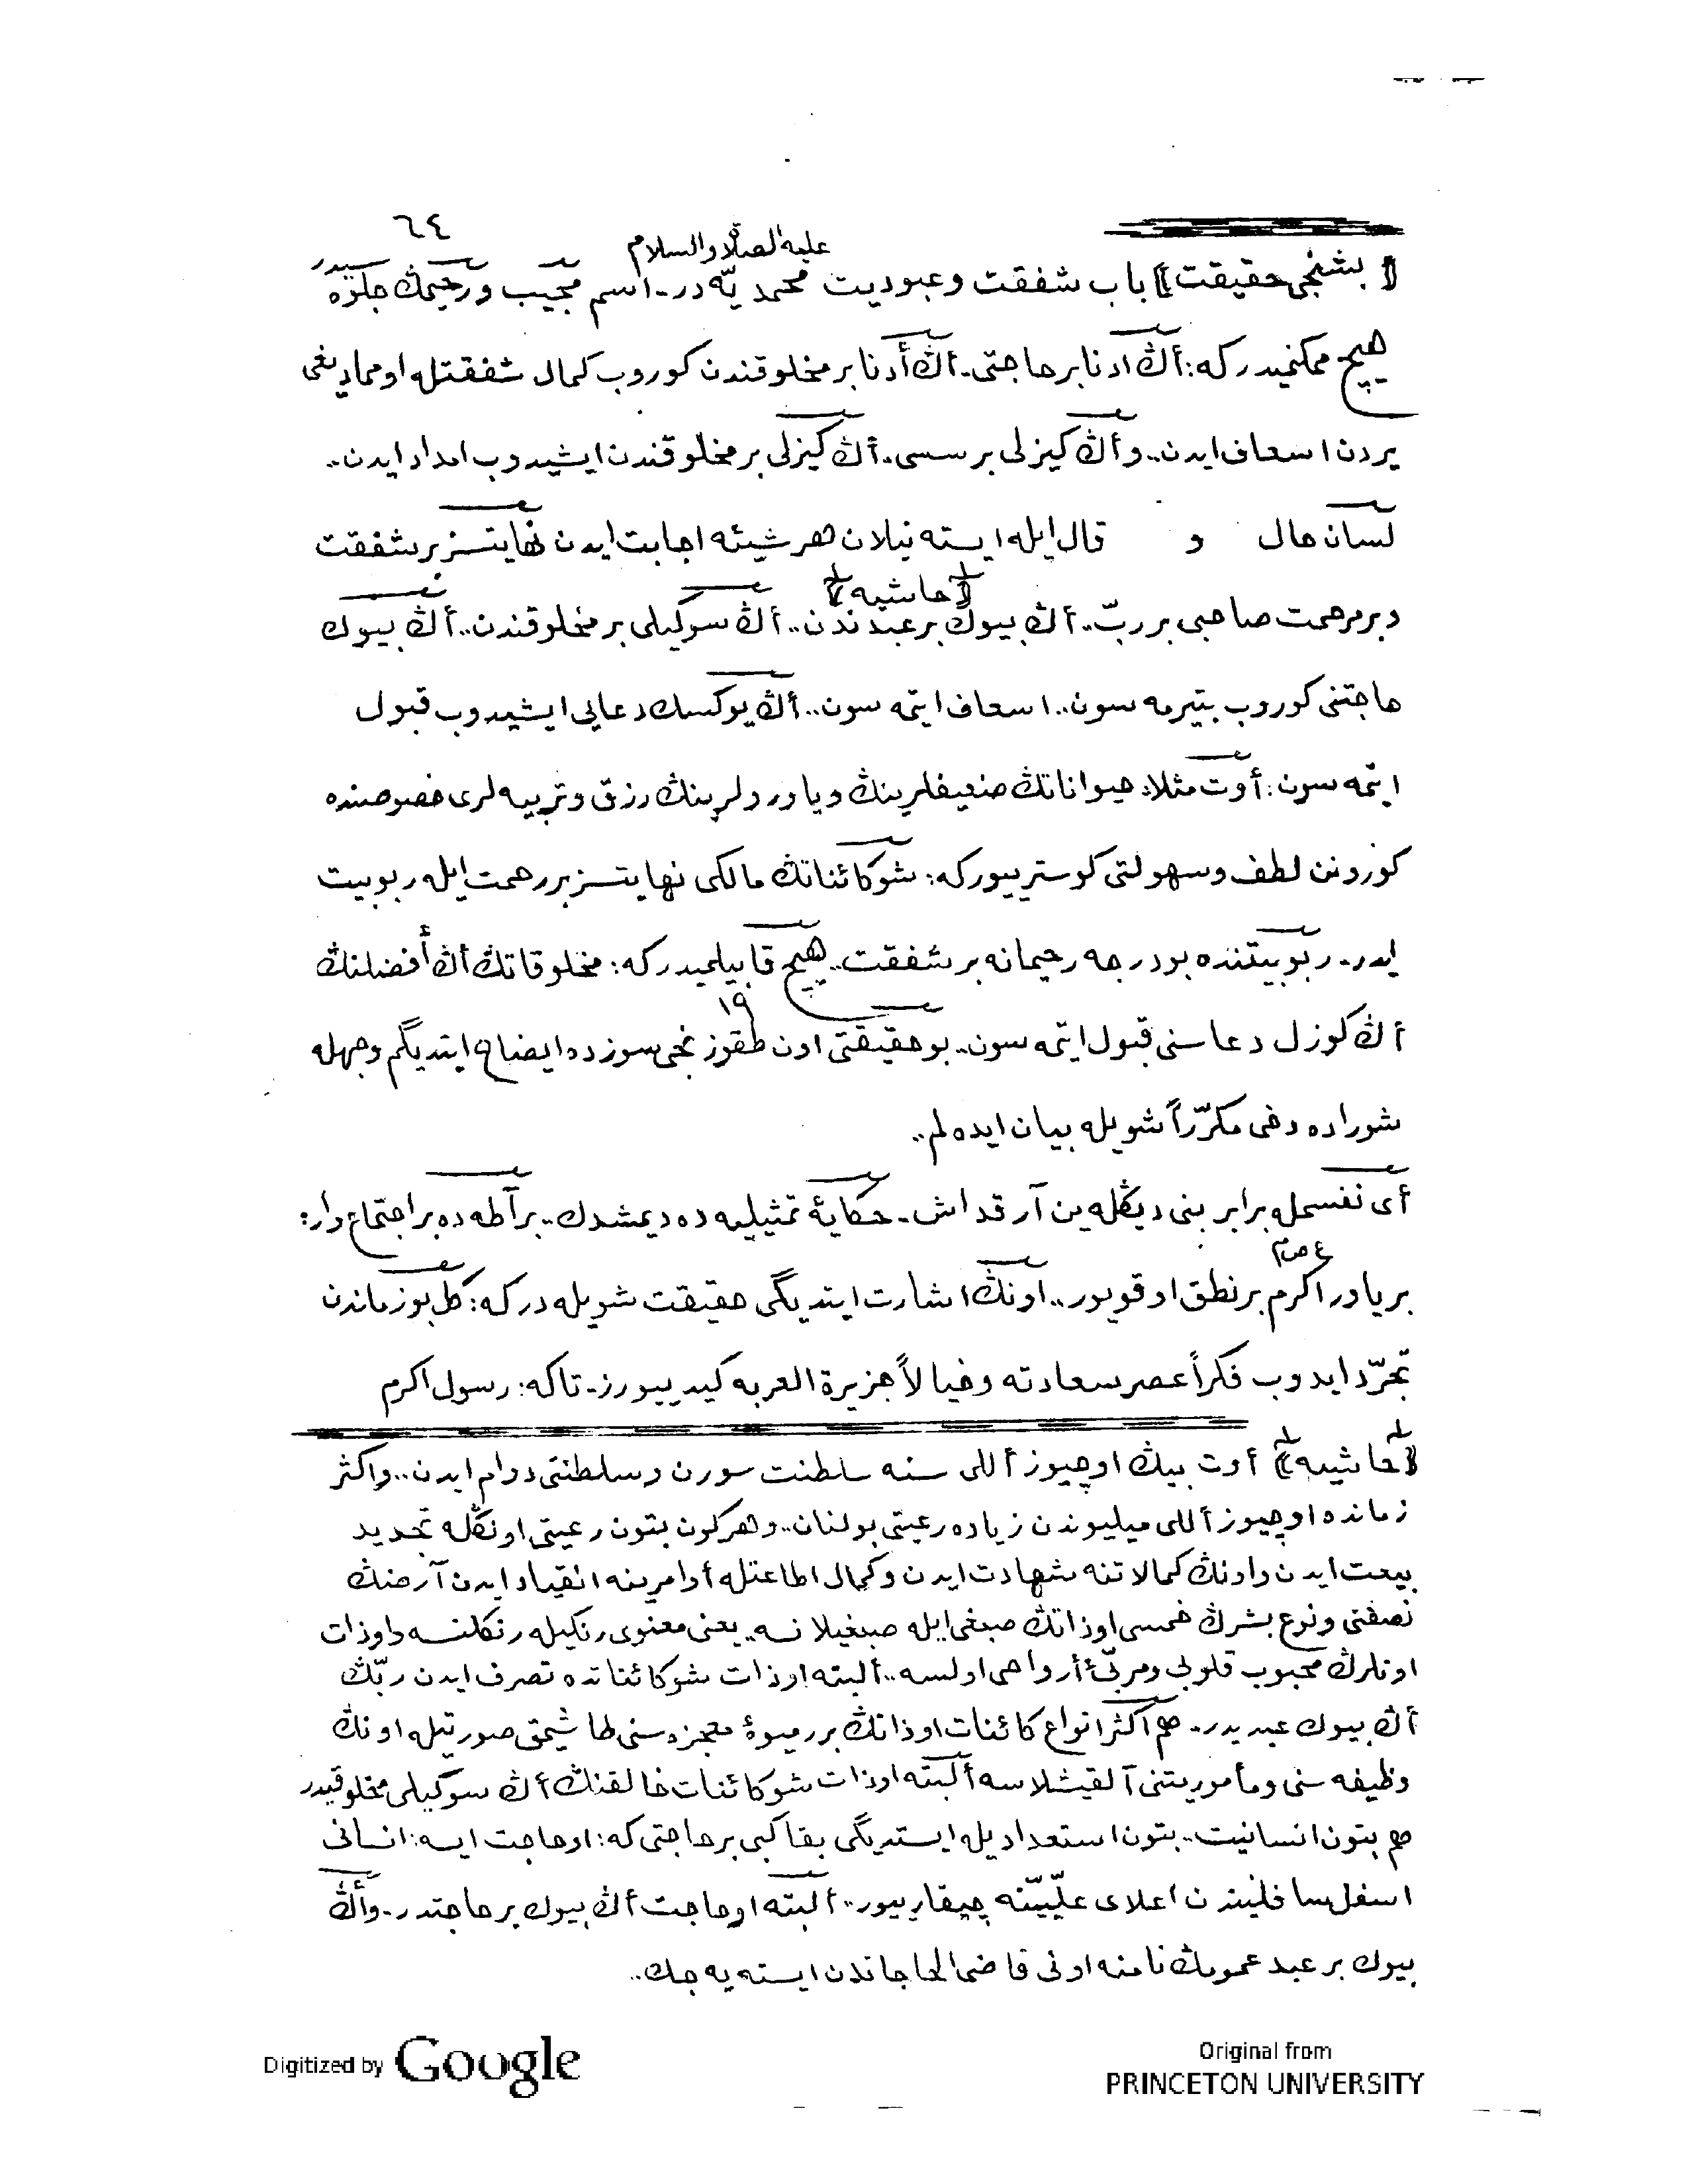 ٦٤
عليه الصلاة والسلام
﴿بشنجی حقیقت﴾ باب شفقت وعبودیت محمدیّه در. اسم مجیب ورحیمڭ جلوه سیدر
هیچ ممکنمیدرکه: أڭ ادنا بر حاجتی. أڭ أدنا بر مخلوقندن کوروب کمال شفقتله اومادیغی
یردن اسعاف ایدن.. وأڭ کیزلی بر سسی. أڭ کیزلی بر مخلوقندن ایشیدوب امداد ایدن..
لسان حال و قال ایله ایسته نیلان هر شیئه اجابت ایدن نهایتسز بر شفقت
﴿حاشیه﴾
وبر مرحمت صاحبی بر ربّ.. أڭ بیوك بر عبدندن.. أڭ سوکیلی بر مخلوقندن.. أڭ بیوك
حاجتنی کوروب بتیرمه سون.. اسعاف ایتمه سون.. أڭ یوکسك دعایی ایشیدوب قبول
ایتمه سون: أوت مثلا، حیواناتڭ ضعیفلرینڭ ویاورولرینڭ رزق وتربیه لری خصوصنده
کورونن لطف وسهولتی کوستریيورکه: شو کائناتڭ مالکی نهایتسز بر رحمت ایله ربوبیت
ایدر. ربوبیتنده بو درجه رحیمانه بر شفقت.. هیچ قابیلمیدرکه: مخلوقاتڭ أڭ أفضلنڭ
أڭ کوزل دعاسنی قبول ایتمه سون.. بو حقیقتی اون طقوزنجی سوزده ایضاح ایتدیگم وجهله
١٩
شوراده دخی مکرّراً شویله بیان ایده لم..
أی نفسمله برابر بنی دیڭله ین آرقداش. حکایهٔ تمثیلیه ده دیمشدك.. بر آطه ده بر اجتماع وار:
ع ص م
بر یاور اکرم بر نطق اوقویور.. اونڭ اشارت ایتدیگی حقیقت شویله درکه: گل بو زماندن
تجرّد ایدوب فکراً عصر سعادته وخیالاً جزیرة العربه کیدیيورز. تاکه: رسول اکرم
﴿حاشیه﴾ أوت بیڭ اوچیوز أللی سنه سلطنت سورن وسلطنتی دوام ایدن.. واکثر
زمانده اوچیوز أللی میلیوندن زیاده رعیتی بولنان.. وهرکون بتون رعیتی اونڭله تجدید
بیعت ایدن واونڭ کمالاتنه شهادت ایدن وکمال اطاعتله أوامرینه انقیاد ایدن آرضنڭ
نصفنی ونوع بشرڭ خمسی اوذاتڭ صبغی ایله صبغیلانسه.. یعنی معنوی رنکیله رنکلنسه واوذات
اونلرڭ محبوب قلوبی ومربّئ أرواحی اولسه.. ألبته اوذات شو کائناتده تصرف ایدن ربّڭ
أڭ بیوك عبدیدر. هم اکثر انواع کائنات اوذاتڭ برر میوهٔ معجزه سنی طاشیمق صورتیله اونڭ
وظیفه سنی ومأموریتنی آلقیشلاسه ألبته اوذات شو کائنات خالقنڭ أڭ سوکیلی مخلوقیدر
هم بتون انسانیت.. بتون استعدادیله ایستدیگی بقا کبی بر حاجتی که: او حاجت ایسه: انسانی
اسفل سافلیندن اعلای علّیّینه چیقاریيور.. ألبته او حاجت أڭ بیوك بر حاجتدر. وأڭ
بیوك بر عبد عمومڭ نامنه اونی قاضی الحاجاتدن ایسته یه جك..
Digitized by Google
Original from
PRINCETON UNIVERSITY